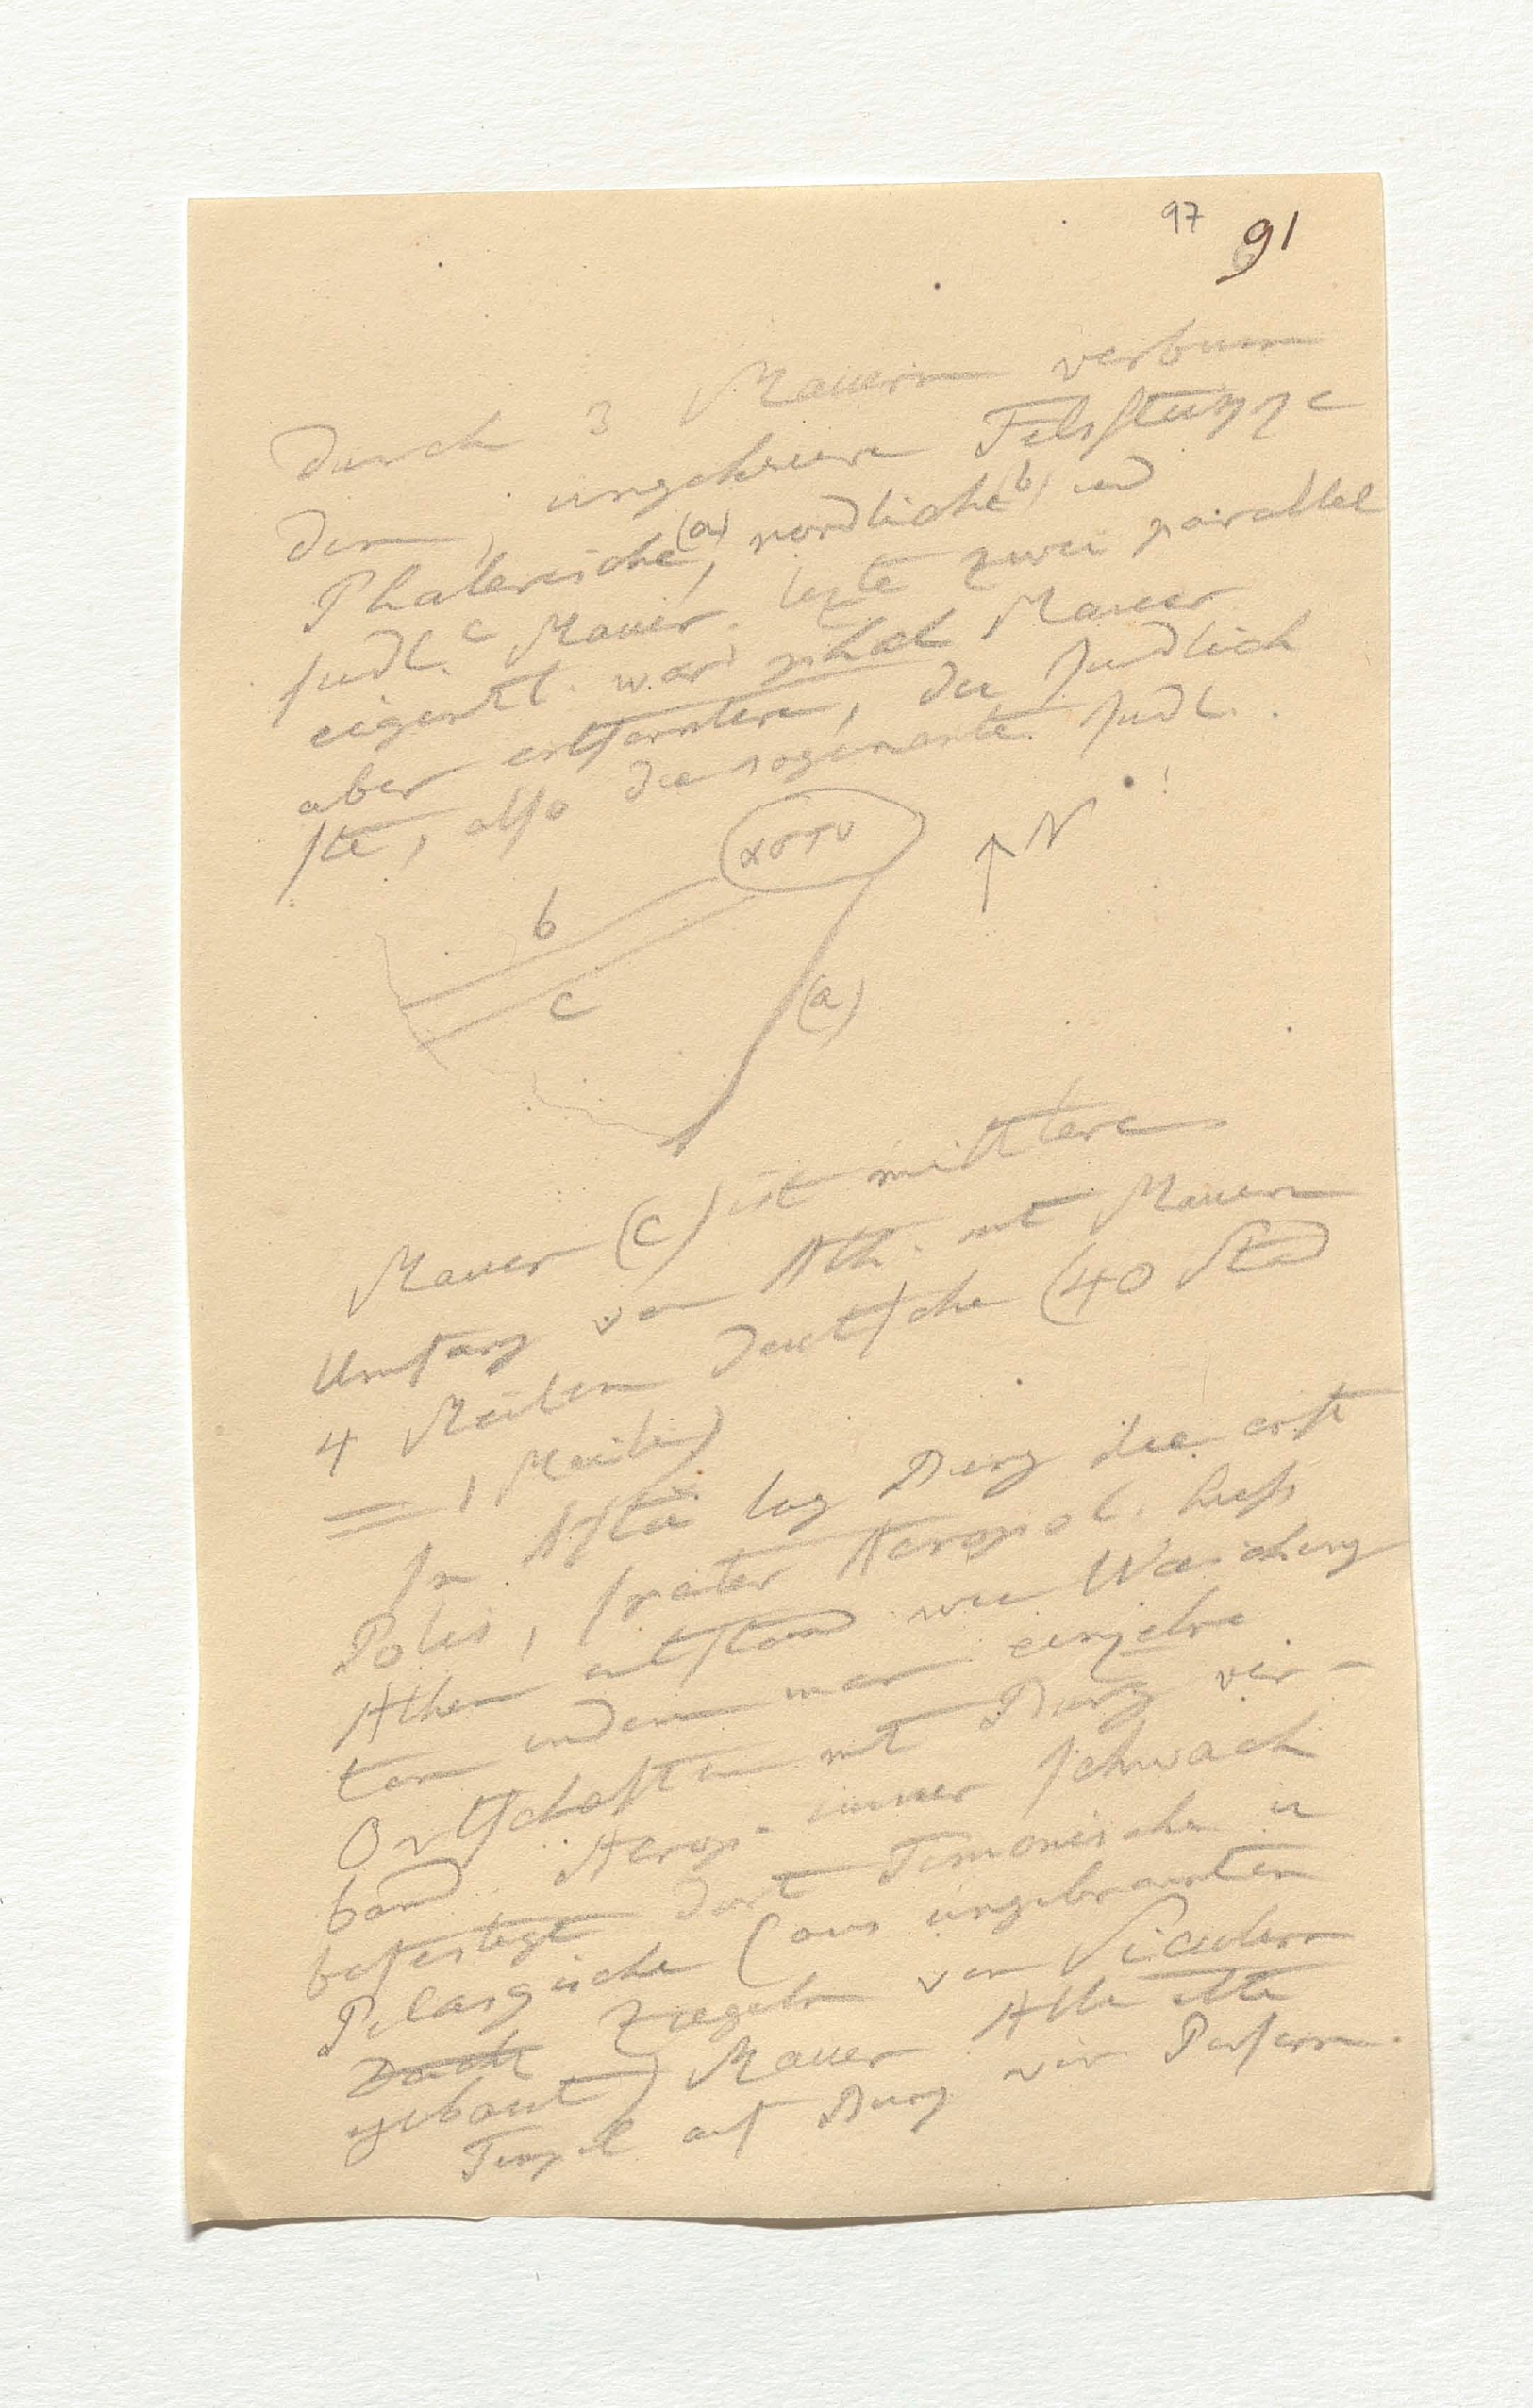 97 91
durch 3 Mauern verbun
den, ungeheure Felsstücke
Phalerische (a), nordliche (b) und
sudl. c Mauer. lezte zwei parallel
eigentl. war phal Mauer
aber entferntere, die sudlich
ste, also die sogenante sudl.
αστυ
N
b
c
(a)
Mauer (c) ist mittlere
Umfang von Ath. mit Mauern
4 Meilen deutsche (40 Stad
= 1 Meile)
In lag Burg die erst
Polis, später Acropol. hiess
Athen entstand wie
ten indem man einzelne
Ortschaften mit Burg ver-
band. Acrop. immer schwach
befestigt dort Cimonische u
Pelasgische (aus ungebranten
Ziegeln von Siculern
gebaut) Mauer Alle alte
Tempel auf Burg von Persern.